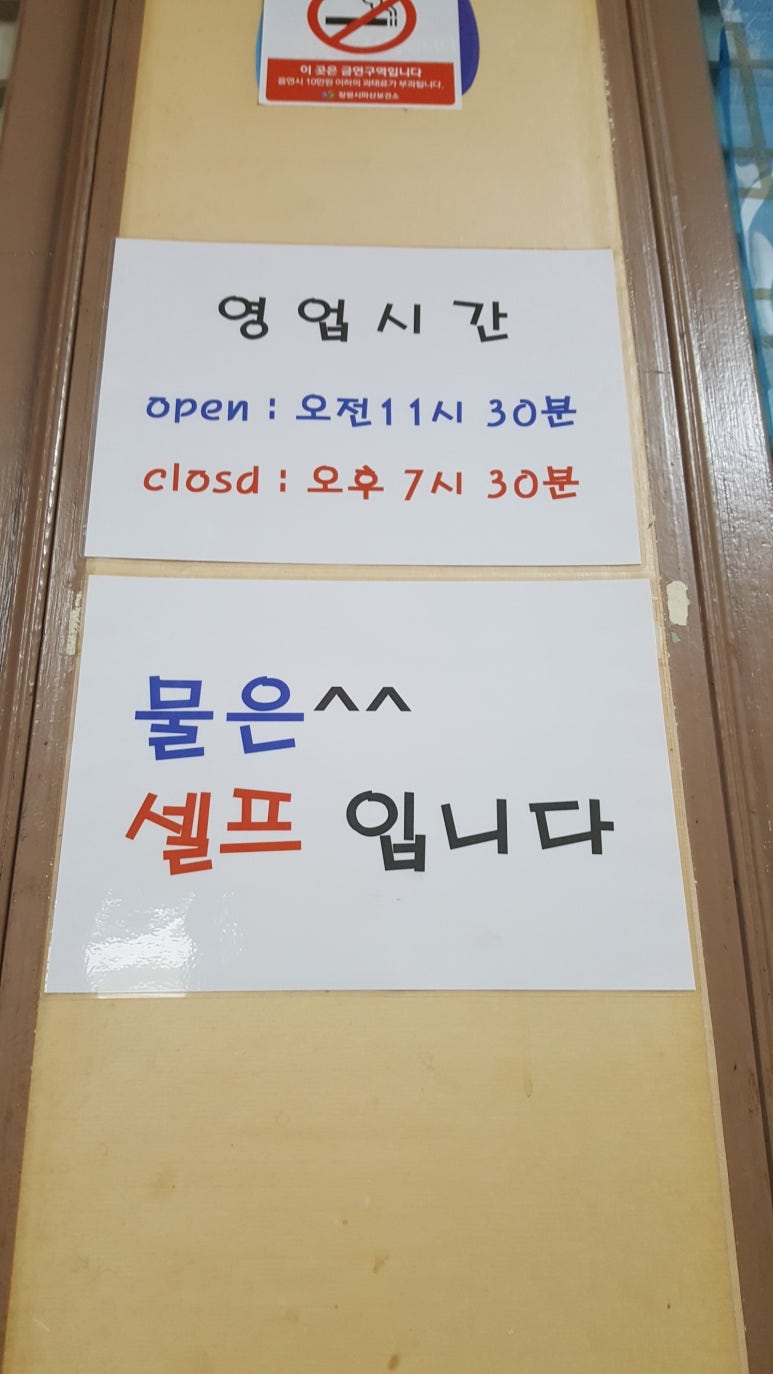 이 곳은 금연구역입니다
흡연시 10만원 이하의 과태료가 부과됩니다.
창원시마산보건소
영업시간
open : 오전11시 30분
closd : 오후 7시 30분
물은^^
셀프 입니다